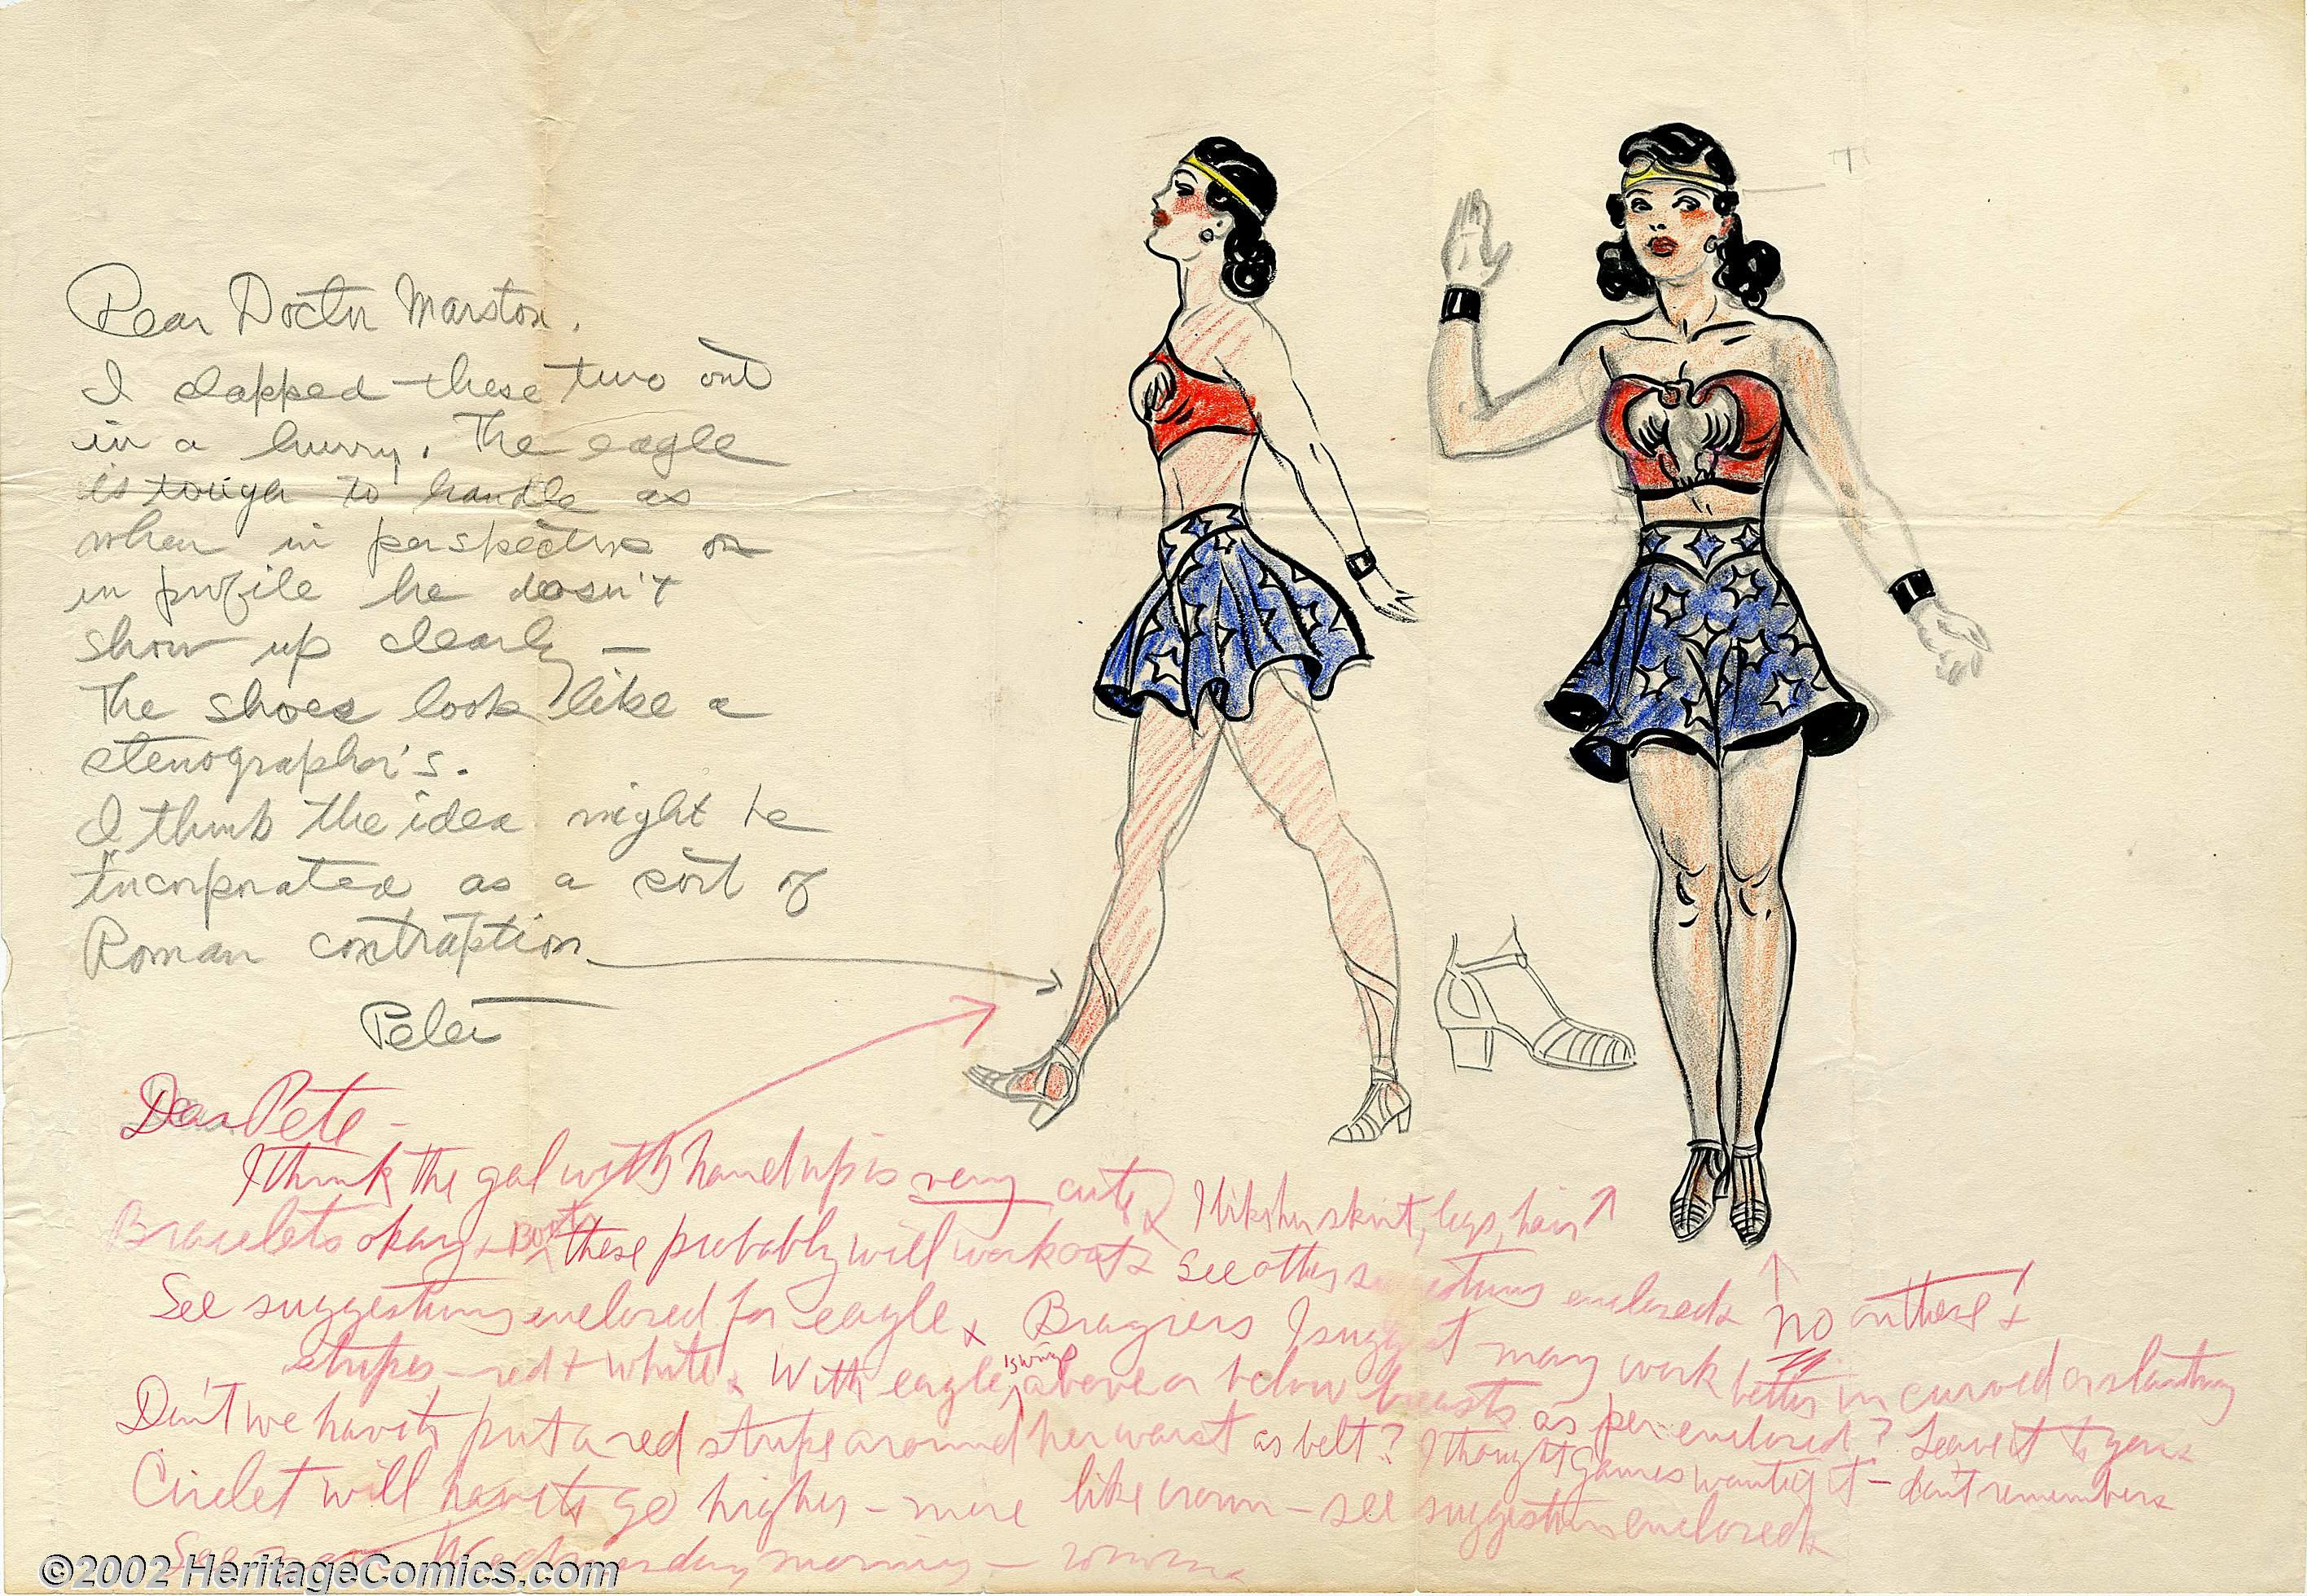 Dear Doctor Marston,
I slapped these two out
in a hurry. The eagle
is tough to handle as
when in perspective or
in profile he doesn't
show up clearly —
The shoes look like a
stenographer's.
I think the idea might be
incorporated as a sort of
Roman contraption
Peter
Dear Pete -
I think the gal with hand up is very cute. I like her skirt, legs, hair
Bracelets okay + Boots these probably will work out. See other suggestions enclosed.
No on these! +
See suggestions enclosed for eagle. I suggest may work better in curved or slanting
stripes - red + white. With eagle's wings above or below breasts as per enclosed? Leave it to you.
Don't we have to put a red stripe around her waist as belt? I thought Gaines wanted it - don't remember.
Circlet will have to go higher - more like crown - see suggestion enclosed.
See Wednesday morning -
©2002 HeritageComics.com